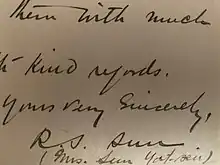 them with much
kind regards.
Yours very sincerely,
R. S. Sun
(Mrs. Sun Yat-sen)